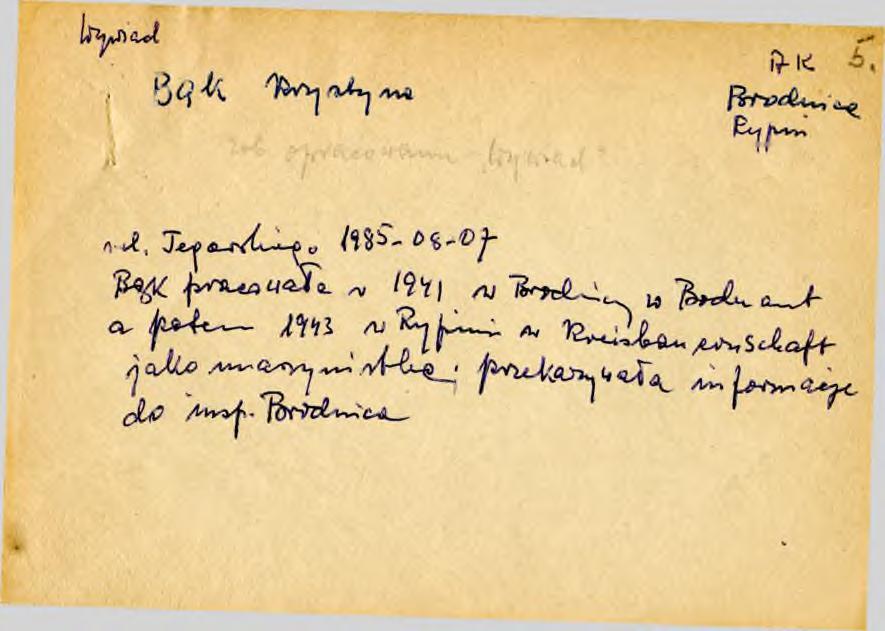 Wywiad
AK 5.
Bąk Krystyna
Brodnica
Rypin
zob opracowanie "Wywiad"
rel. Tegowskiego 1985-08-07
Bąk pracowała w 1941 w Brodnicy w Bodenamt
a potem 1943 w Rypinie w Kreisbauernschaft
jako maszynistka; przekazywała informacje
do insp. Brodnica